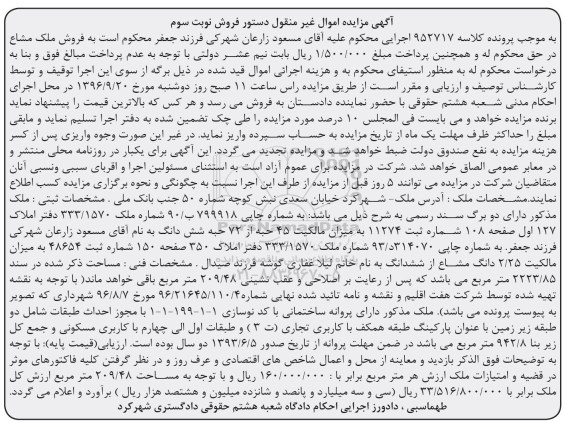 آگهی مزایده اموال غیر منقول دستور فروش نوبت سوم
به موجب پرونده کلاسه ۹۵۲۷۱۷ اجرایی محکوم علیه آقای مسعود زارعان شهرکی فرزند جعفر محکوم است به فروش ملک مشاع
در حق محکوم له و همچنین پرداخت مبلغ ۱/۵۰۰/۰۰۰ ریال بابت نیم عشر دولتی با توجه به عدم پرداخت مبالغ فوق و بنا به
درخواست محکوم له به منظور استیفای محکوم به و هزینه اجرائی اموال قید شده در ذیل برگه از سوی این اجرا توقیف و توسط
کارشناس توصیف و ارزیابی و مقرر است از طریق مزایده راس ساعت ۱۱ صبح روز دوشنبه مورخ ۱۳۹۶/۹/۲۰ در محل اجرای
احکام مدنی شعبه هشتم حقوقی با حضور نماینده دادستان به فروش می رسد و هر کس که بالاترین قیمت را پیشنهاد نماید
برنده مزایده خواهد و می بایست فی المجلس ۱۰ درصد مورد مزایده را طی چک تضمین شده به دفتر اجرا تسلیم نماید و مابقی
مبلغ را حداکثر ظرف مهلت یک ماه از تاریخ مزایده به حساب سپرده واریز نماید. در غیر این صورت وجوه واریزی پس از کسر
هزینه مزایده به نفع صندوق دولت ضبط خواهد شد و مزایده تجدید می گردد. این آگهی برای یکبار در روزنامه محلی منتشر و
در معابر عمومی الصاق خواهد شد. شرکت در مزایده برای عموم آزاد است به استثنای مسئولین اجرا و اقربای سببی ونسبی آنان
متقاضیان شرکت در مزایده می توانند ۵ روز قبل از مزایده از طرف این اجرا نسبت به چگونگی و نحوه برگزاری مزایده کسب اطلاع
نمایند.مشخصات ملک : آدرس ملک- شهرکرد خیابان سعدی نبش کوچه شماره ۵۰ جنب بانک ملی . مشخصات ثبتی : ملک
مذکور دارای دو برگ سند رسمی به شرح ذیل می باشد: به شماره چاپی ۷۹۹۹۱۸ ب/۹۰ شماره ملک ۳۳۳/۱۵۷۰ دفتر املاک
۱۲۷ اول صفحه ۱۰۸ شماره ثبت ۱۱۲۷۴ به میزان مالکیت ۴۵ حبه از ۷۲ حبه شش دانگ به نام آقای مسعود زارعان شهرکی
فرزند جعفر. به شماره چاپی ۳۱۴۰۷۰د/۹۳ شماره ملک ۳۳۳/۱۵۷۰ دفتر املاک ۳۵۰ صفحه ۱۵۰ شماره ثبت ۴۸۶۵۴ به میزان
مالکیت ۲/۲۵ دانگ مشاع از ششدانگ به نام خانم لیلا غفاری گوشه فرزند صیدال . مشخصات فنی : مساحت ذکر شده در سند
۲۲۲۳/۸۵ متر مربع می باشد که پس از رعایت بر اصلاحی و عقب نشینی ۲۰۹/۴۸ متر مربع باقی خواهد ماند( با توجه به نقشه
تهیه شده توسط شرکت هفت اقلیم و نقشه و نامه تائید شده نهایی شماره۹۶/۲۱۶۴۵/۱۱۰/۴ مورخ ۹۶/۸/۷ شهرداری که تصویر
به پیوست پرونده می باشد). ملک مذکور دارای پروانه ساختمانی با کد نوسازی ۱-۱-۱۹۹-۱-۱ با مجوز احداث طبقات شامل دو
طبقه زیر زمین با عنوان پارکینگ طبقه همکف با کاربری تجاری (ت ۳ ) و طبقات اول الی چهارم با کاربری مسکونی و جمع کل
زیر بنا ۹۴۲/۸ متر مربع می باشد در ضمن مهلت پروانه از تاریخ صدور ۱۳۹۳/۶/۵ دو سال بوده است. ارزیابی(قیمت پایه): با توجه
به توضیحات فوق الذکر بازدید و معاینه از محل و اعمال شاخص های اقتصادی و عرف روز و در نظر گرفتن کلیه فاکتورهای موثر
در قضیه و امتیازات ملک ارزش هر متر مربع برابر با : ۱۶۰/۰۰۰/۰۰۰ ریال و با توجه به مساحت ۲۰۹/۴۸ متر مربع ارزش کل
ملک برابر با ۳۳/۵۱۶/۸۰۰/۰۰۰ ریال (سی و سه میلیارد و پانصد و شانزده میلیون و هشتصد هزار ریال ) برآورد و اعلام می گردد.
طهماسبی ، دادورز اجرایی احکام دادگاه شعبه هشتم حقوقی دادگستری شهرکرد